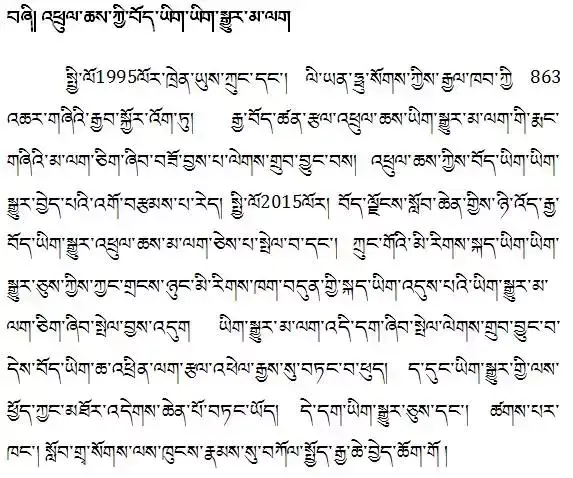 བཞི། འཕྲུལ་ཆས་ཀྱི་བོད་ཡིག་ཡིག་སྒྱུར་མ་ལག
སྤྱི་ལོ1995ལོར་ཁྲེན་ཡུས་ཀྲུང་དང་། ལི་ཡན་ཧྥུ་སོགས་ཀྱིས་རྒྱལ་ཁབ་ཀྱི 863
འཆར་གཞིའི་རྒྱབ་སྐྱོར་འོག་ཏུ། རྒྱ་བོད་ཚན་རྩལ་འཕྲུལ་ཆས་ཡིག་སྒྱུར་མ་ལག་གི་རྨང་
གཞིའི་མ་ལག་ཅིག་ཞིབ་བཟོ་བྱས་པ་ལེགས་གྲུབ་བྱུང་བས། འཕྲུལ་ཆས་ཀྱིས་བོད་ཡིག་ཡིག་
སྒྱུར་བྱེད་པའི་འགོ་བརྩམས་པ་རེད། སྤྱི་ལོ2015ལོར། བོད་ལྗོངས་སློབ་ཆེན་གྱིས་ཉི་འོད་རྒྱ་
བོད་ཡིག་སྒྱུར་འཕྲུལ་ཆས་མ་ལག་ཅེས་པ་སྤེལ་བ་དང་། ཀྲུང་གོའི་མི་རིགས་སྐད་ཡིག་ཡིག་
སྒྱུར་ཅུས་ཀྱིས་ཀྱང་གྲངས་ཉུང་མི་རིགས་ཁག་བདུན་གྱི་སྐད་ཡིག་འདུས་པའི་ཡིག་སྒྱུར་མ་
ལག་ཅིག་ཞིབ་སྤེལ་བྱས་འདུག ཡིག་སྒྱུར་མ་ལག་འདི་དག་ཞིབ་སྤེལ་ལེགས་གྲུབ་བྱུང་བ་
དེས་བོད་ཡིག་ཆ་འཕྲིན་ལག་རྩལ་འཕེལ་རྒྱས་སུ་བཏང་བ་ཕུད། ད་དུང་ཡིག་སྒྱུར་གྱི་ལས་
ཕྱོད་ཀྱང་མཐོར་འདེགས་ཆེན་པོ་བཏང་ཡོད། དེ་དག་ཡིག་སྒྱུར་ཅུས་དང་། ཚགས་པར་
ཁང་། སློབ་གྲྭ་སོགས་ལས་ཁུངས་རྣམས་སུ་བཀོལ་སྤྱོད་རྒྱ་ཆེ་བྱེད་ཆོག་གོ །